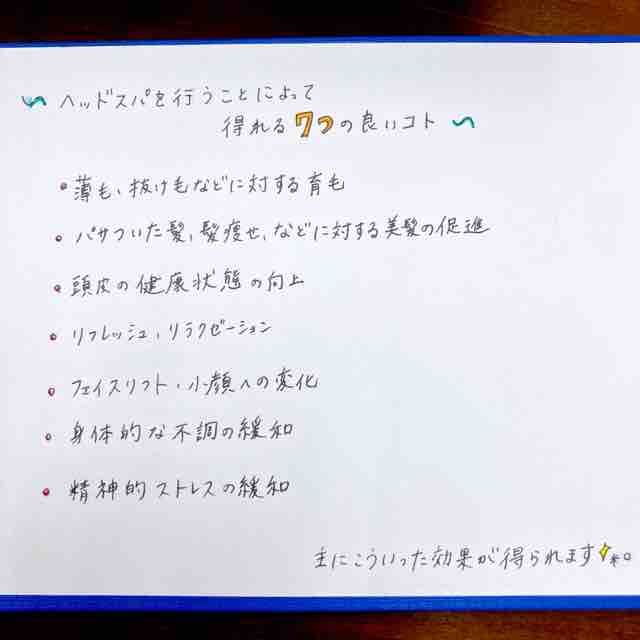 ヘッドスパを行うことによって
得れる7つの良いコト
・薄も、抜け毛などに対する育毛
・パサついた髪、髪痩せ、などに対する美髪の促進
・頭皮の健康状態の向上
・リフレッシュ、リラクゼーション
・フェイスリフト・小顔への変化
・身体的な不調の緩和
・精神的ストレスの緩和
主にこういった効果が得られます